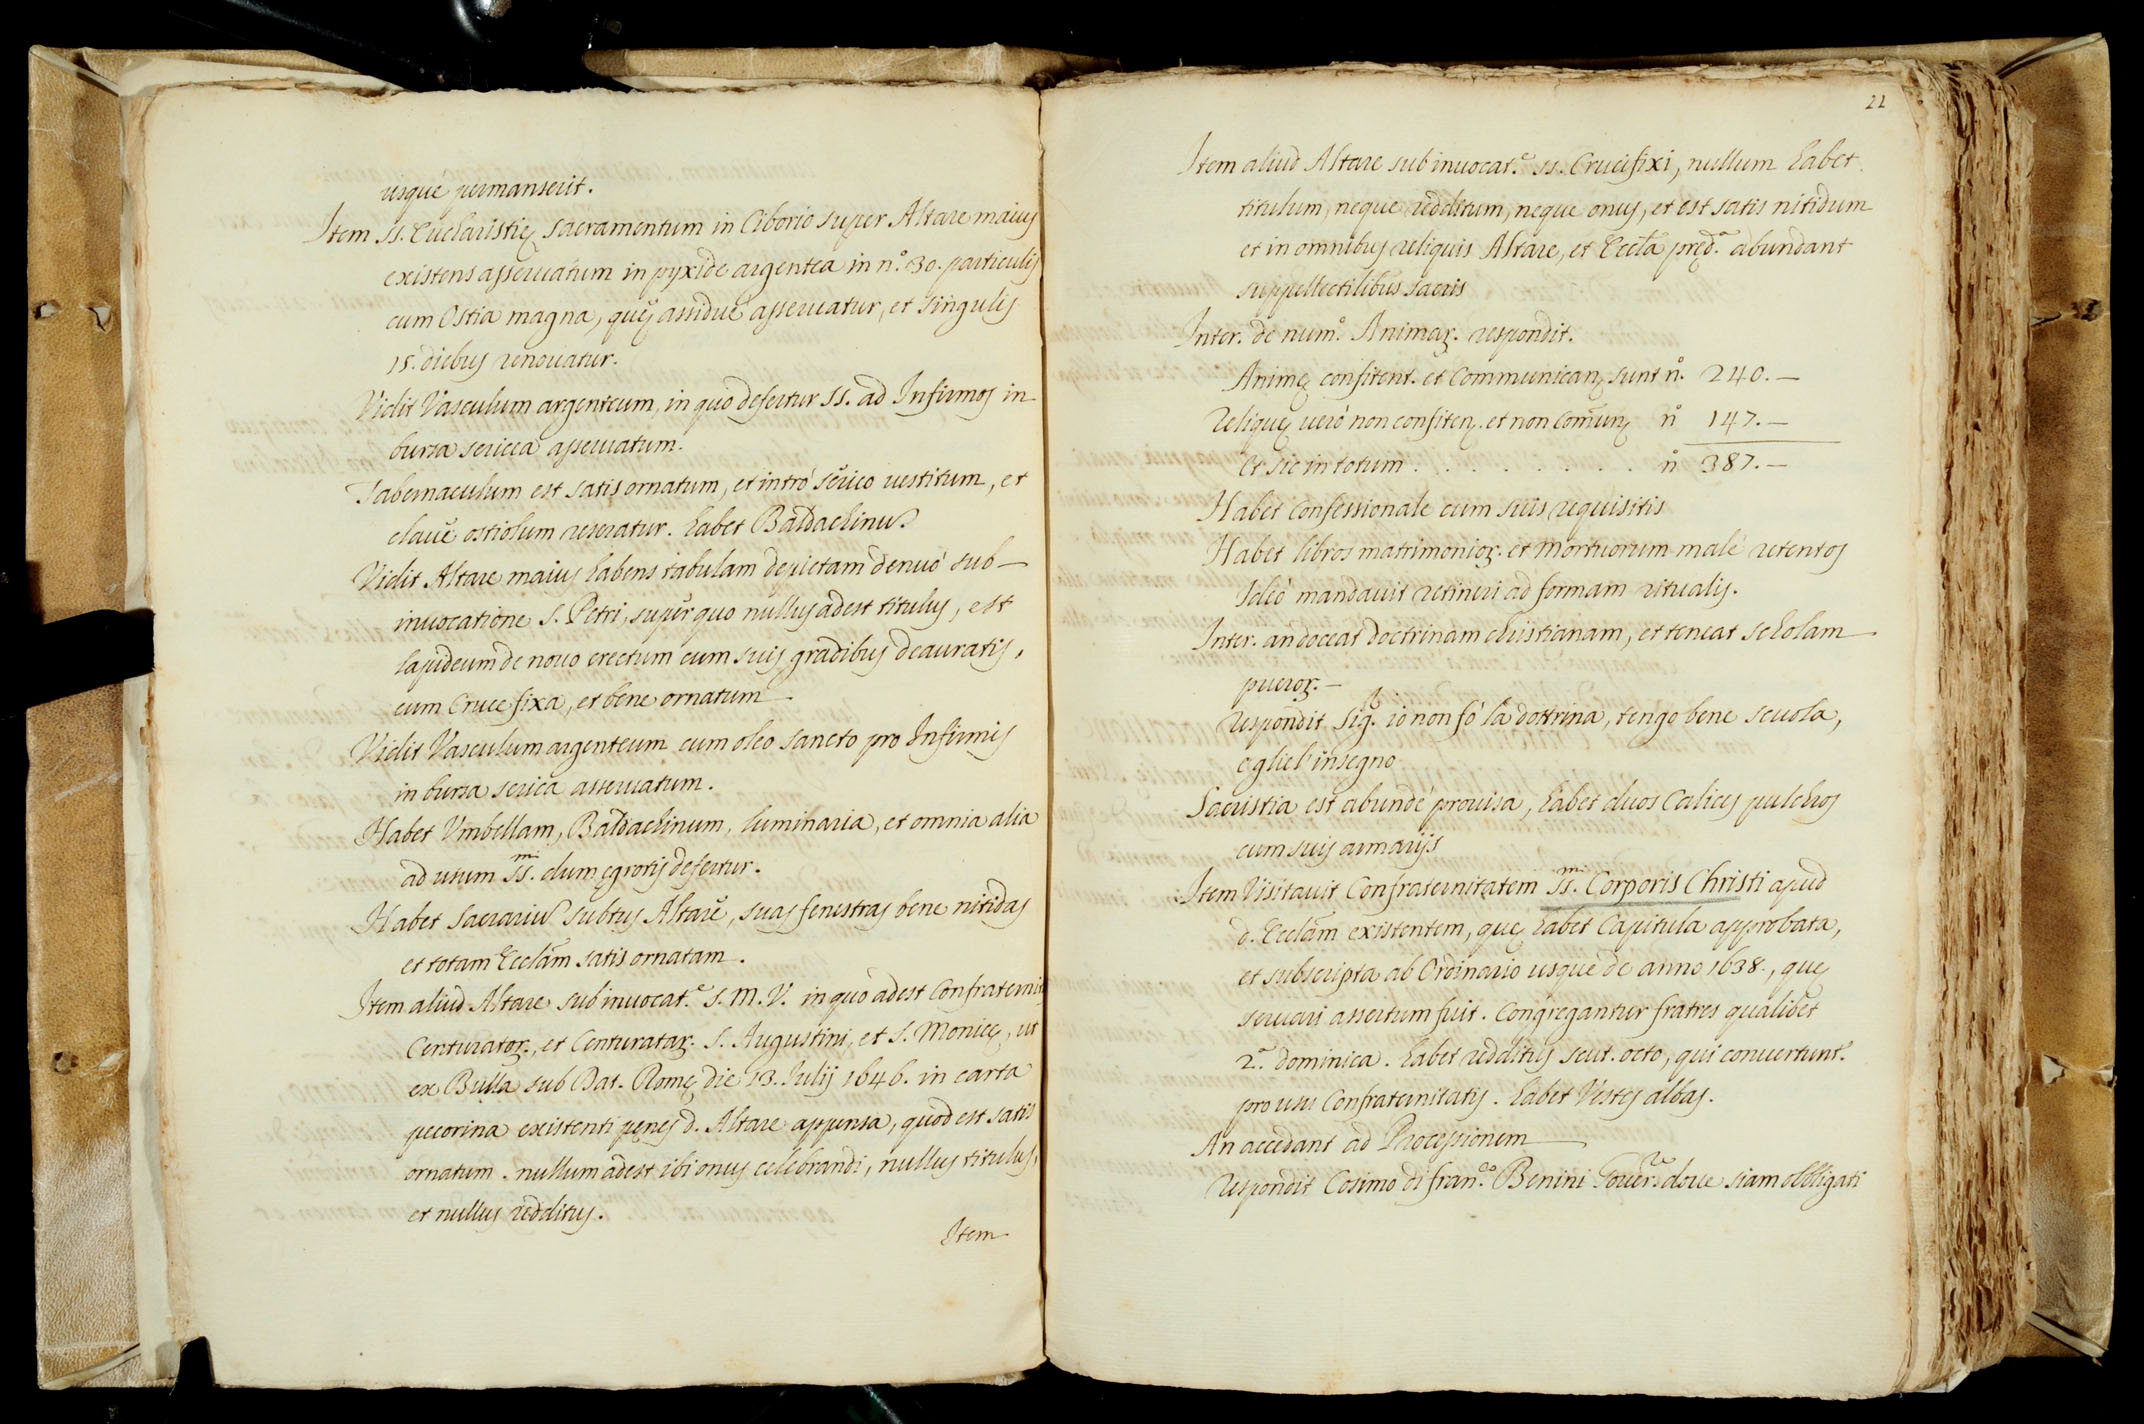 usque permanserit.
Item SS. Eucharistię sacramentum in Ciborio super Altare maius
existens asseruatum in pyxide argentea in n.º 30. particulis
cum Ostia magna, quę assidue asseruatur, et singulis
15. diebus renouatur.
Vidit Vasculum argenteum, in quo defertur SS. ad Infirmos in
bursa sericea asseruatum.
Tabernaculum est satis ornatum, et intró serico uestitum, et
claue ostiolum reseratur. habet Baldachinũ
Vidit Altare maius habens tabulam depictam denuó sub
inuocatione S. Petri, super quo nullus adest titulus, est
lapideum de nouo erectum cum suis gradibus deauratis,
cum Cruce fixa, et bene ornatum
Vidit Vasculum argenteum cum oleo sancto pro Infirmis
in bursa serica asseruatum.
Habet Vmbellam, Baldachinum, luminaria, et omnia alia
ad usum SS.mi dum ęgrotis defertur.
Habet Sacrariũ subtus Altare, suas fenestras bene nitidas
et totam Eccłam satis ornatam.
Item aliud Altare sub inuocat.e S. M. V. in quo adest Confraternit
Centurator., et Centuratar. S. Augustini, et S. Monicę, ut
ex Bulla sub Dat. Romę die 13. Iulij 1646. in carta
pecorina existenti pęnes d. Altare appensa, quod est satis
ornatum. nullum adest ibi onus celebrandi, nullus titulus,
et nullus redditus.
Item
22
Item aliud Altare sub inuocat.e SS. Crucifixi, nullum habet
titulum, neque redditum, neque onus, et est satis nitidum
et in omnibus reliquis Altare, et Eccła pręd.a abundant
suppellectilibus sacris
Inter. de num.o Animar. respondit.
Animę confitent. et Communican. sunt n.º 240.—
Reliquę ueró non confiten. et non Comun. nº 147.—
Et sic in totum . . . . . . . . nº 387.—
Habet confessionale cum suis requisitis
Habet libros matrimonior. et Mortuorum malé retentos
Ideó mandauit retineri ad formam ritualis.
Inter. an doceat doctrinam christianam, et teneat scholam
pueror.—
respondit Sig.r io non fó la dottrina, tengo bene scuola,
e gliel'insegno
Sacristia est abundé prouisa, habet duos Calices pulchros
cum suis armarijs
Item Visitauit Confraternitatem SS.mi Corporis Christi apud
d. Eccłam existentem, quę habet Capitula approbata,
et subscripta ab Ordinario usque de anno 1638., quę
seruari assertum fuit. Congregantur fratres qualibet
2.a dominica. habet redditus scut. octo, qui conuertunt.r
pro usu Confraternitatis. habet Vestes albas.
An accedant ad Processionem
respondit Cosimo di fran.co Benini Gouer.re doue siam obbligati